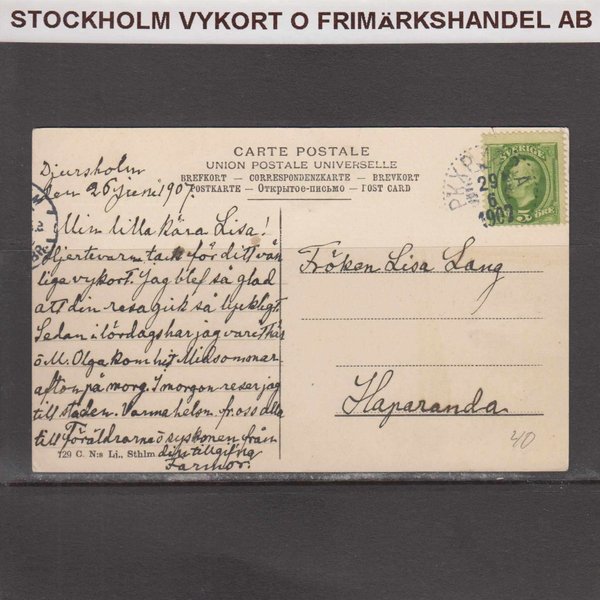 STOCKHOLM VYKORT O FRIMÄRKSHANDEL AB
CARTE POSTALE
UNION POSTALE UNIVERSELLE
BREFKORT — CORRESPONDENZKARTE — BREVKORT
POSTKARTE — Открытое-письмо — POST CARD
Djursholm
den 26 Juni 1907.
Min lilla kära Lisa!
Hjertevarm tack för ditt vän
liga vykort. Jag blef så glad
att din resa gick så lyckligt.
Sedan i lördags har jag varit här
ö M. Olga kom hit Midsommar
afton på morg. I morgon reser jag
till staden. Varma helsn fr. oss alla
till Föräldrarna ö syskonen från
din tillgifna
Farmor.
129 C. N:s Lj., Sthlm
SVERIGE
5 ÖRE
PKXP
29
6
1907
Fröken Lisa Lang
Haparanda
40